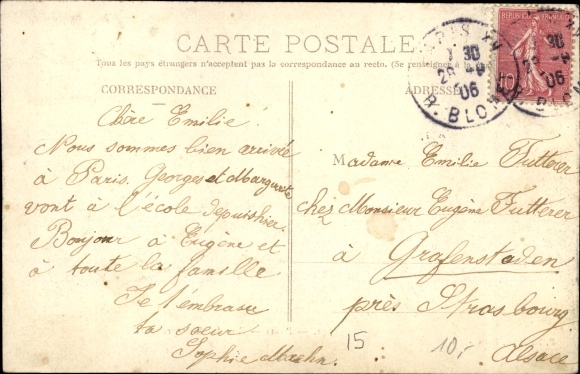 CARTE POSTALE
Tous les pays étrangers n'acceptent pas la correspondance au recto. (Se renseigner à la
CORRESPONDANCE
ADRESSE
PARIS XV
30
28 -9
06
R. BLOMET
REPUBLIQUE FRANÇAISE
10
30
-9
06
Chère Emilie!
Nous sommes bien arrivée
à Paris. Georges et Marguerite
vont à l'école depuishier.
Bonjour à Eugène et
à toute la famille
Je t'embrasse
ta soeur
Sophie
Madame Emilie Futterer
chez Monsieur Eugène Futterer
à Grafenstaden
près Strasbourg
Alsace
15
10,-